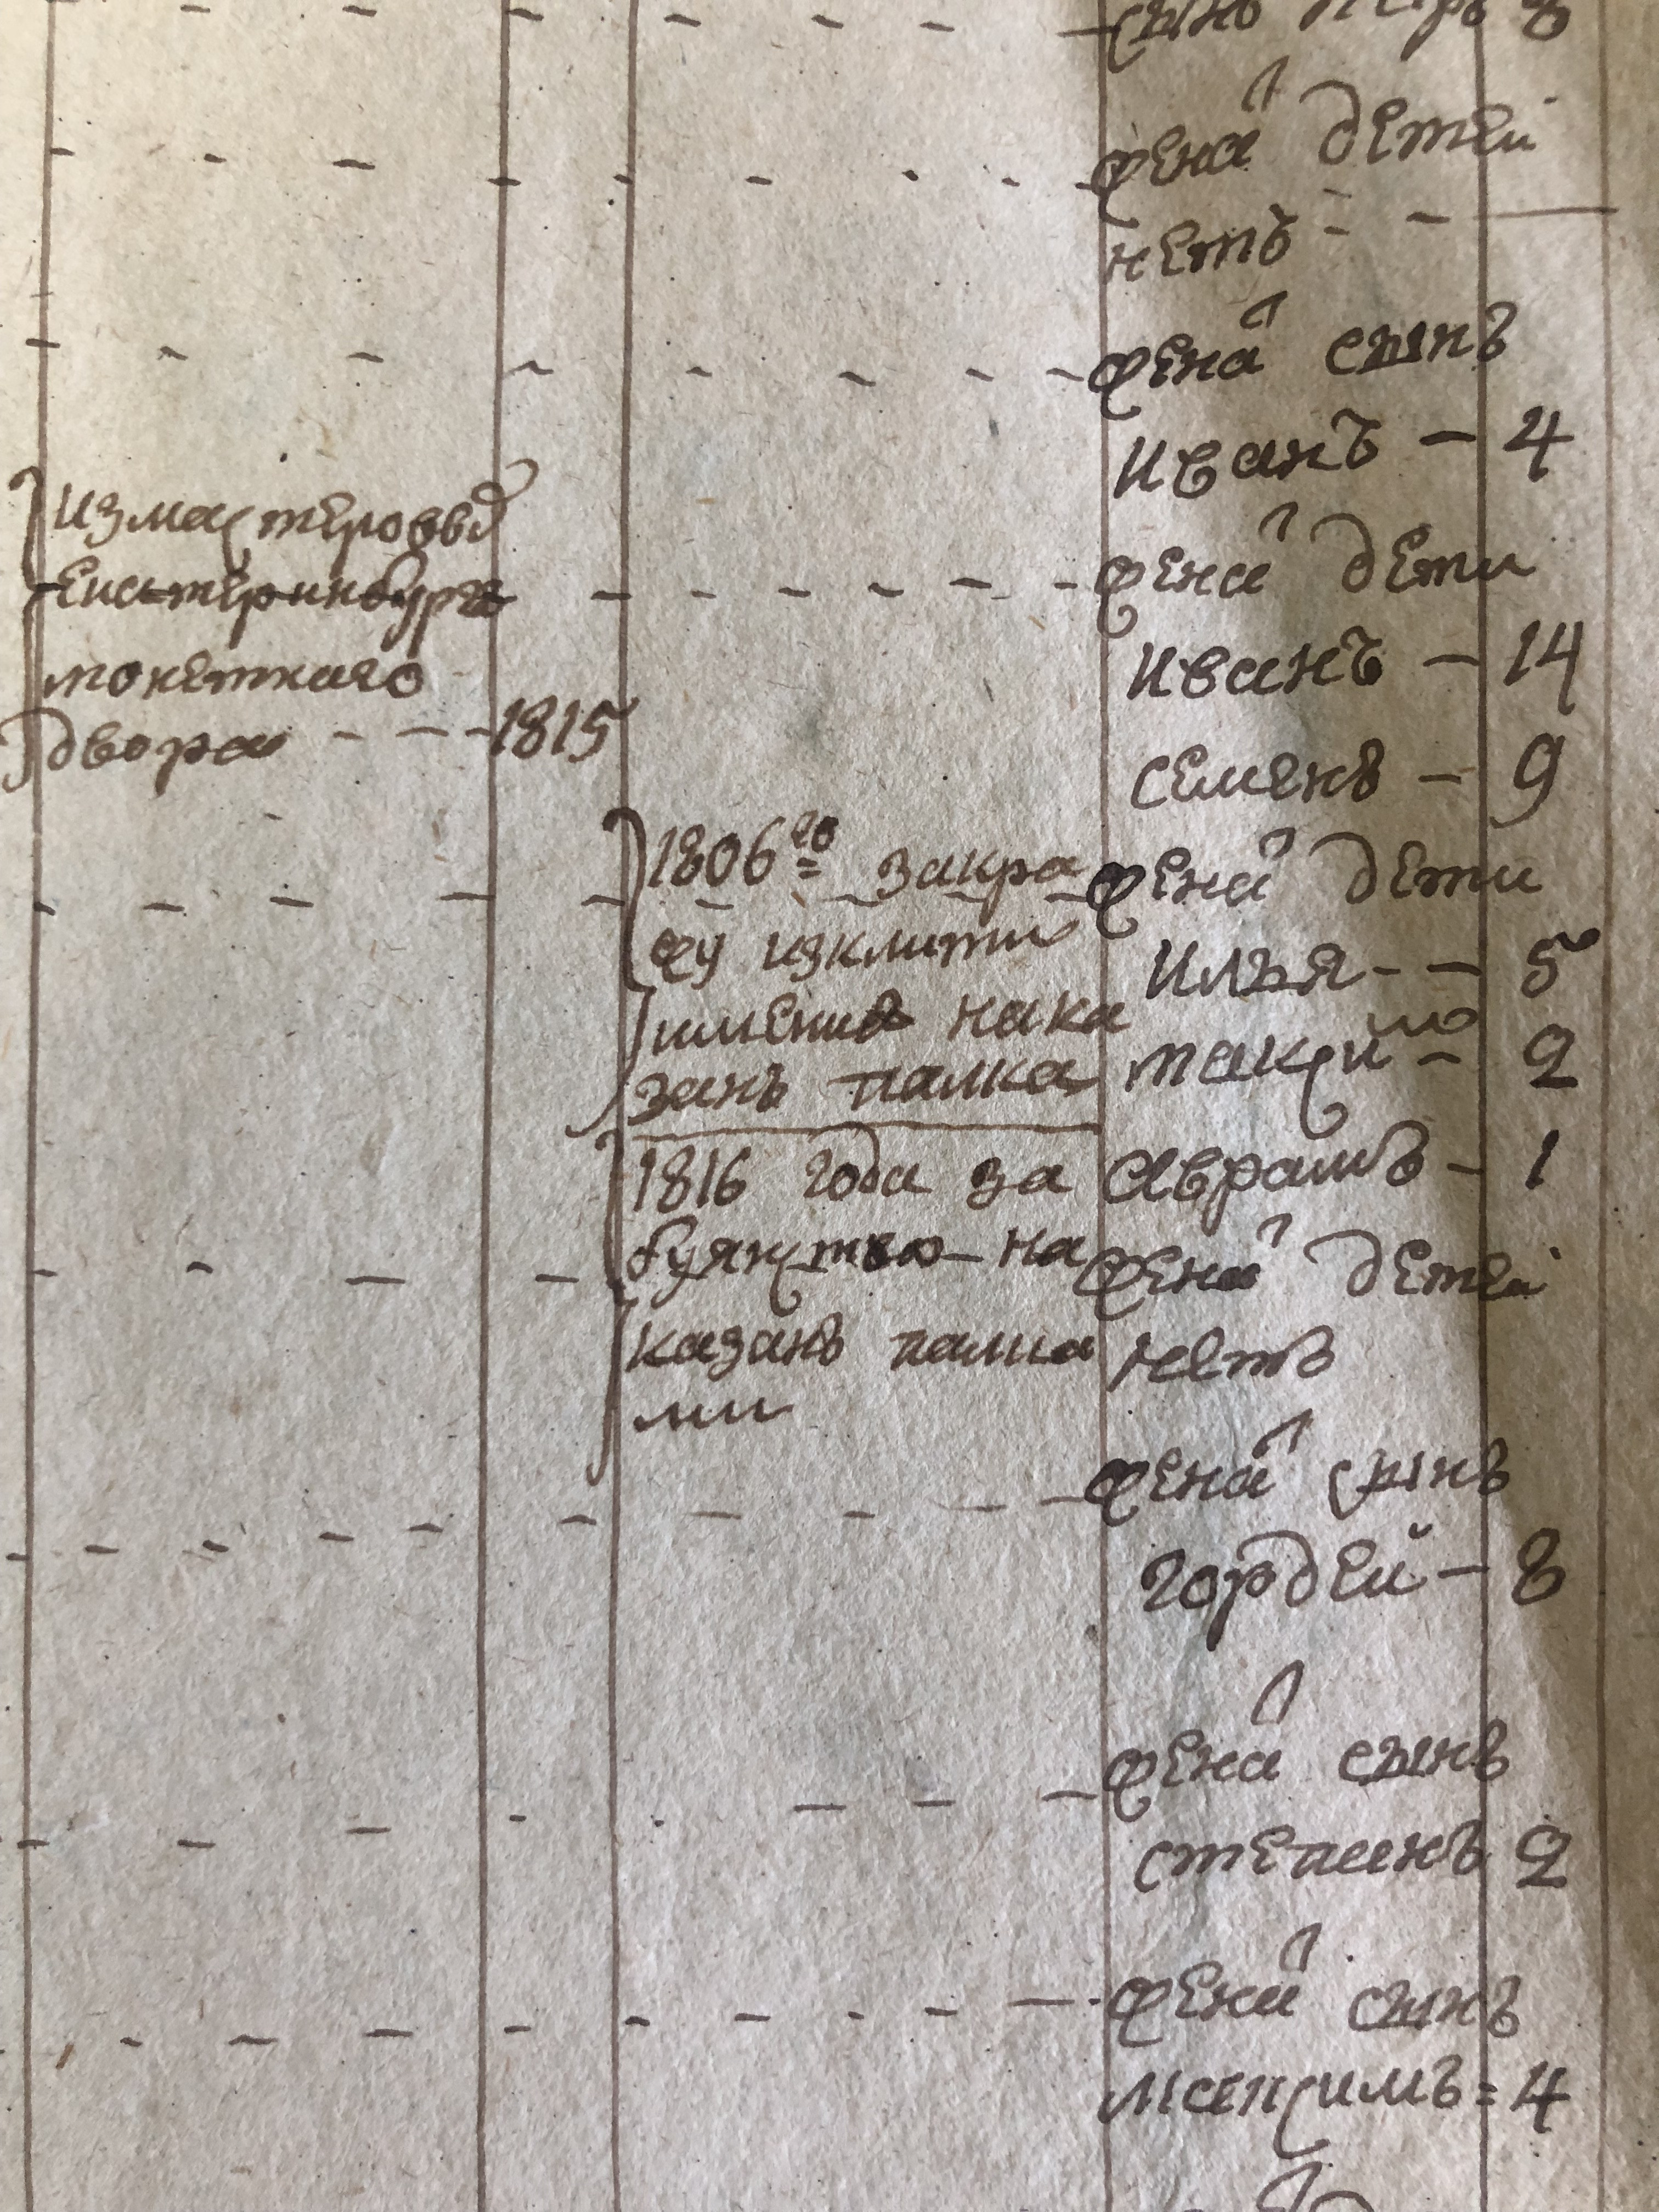 сынъ петръ 8
жена детей
нетъ
жена сынъ
Иванъ — 4
измастеровыхъ
Екатеринбургс
монетнаго
двора - - - 1815
жена дети
Иванъ — 14
семенъ — 9
1806го закра
жу
наказанъ палка
жена дети
Илья - - 5
2
Аврамъ - 1
1816 года за
буянство на
казанъ палка
ми
жена детей
нетъ
жена сынъ
гордей — 8
жена сынъ
степанъ 2
жена сынъ
Максимъ = 4